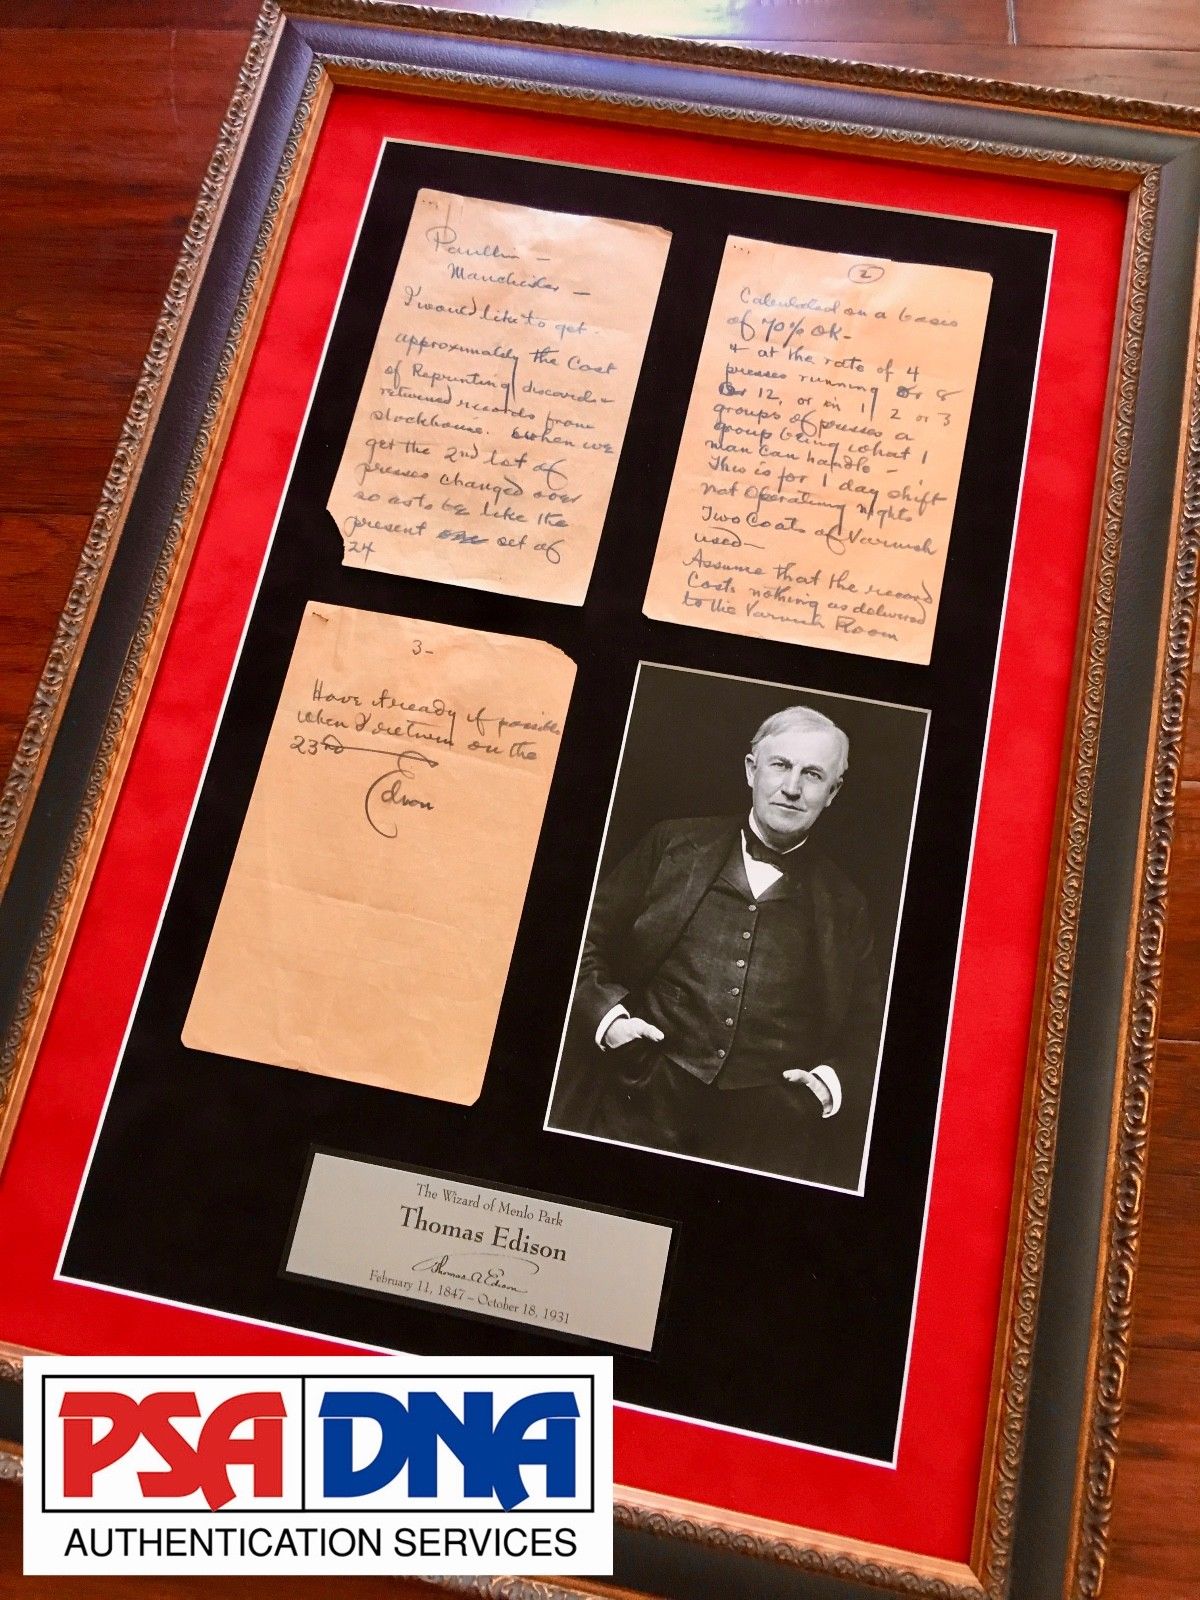 Manchester —
I would like to get
approximately the Cost
of Reprinting discards &
returned records from
stockhouse. when we
get the 2nd lot of
presses changed over
so as to be like the
present set of
24
2
Calculated on a basis
of 70% OK-
& at the rate of 4
presses running or 8
or 12, or in 1 2 or 3
groups of presses a
group being what 1
man can handle –
This is for 1 day shift
not Operating nights
Two Coats of Varnish
used—
Assume that the record
Costs nothing as delivered
to the Varnish Room
3-
Have ready if possible
when I return on the
23rd
Edison
The Wizard of Menlo Park
Thomas Edison
Thomas A Edison
February 11, 1847 – October 18, 1931
PSA DNA
AUTHENTICATION SERVICES